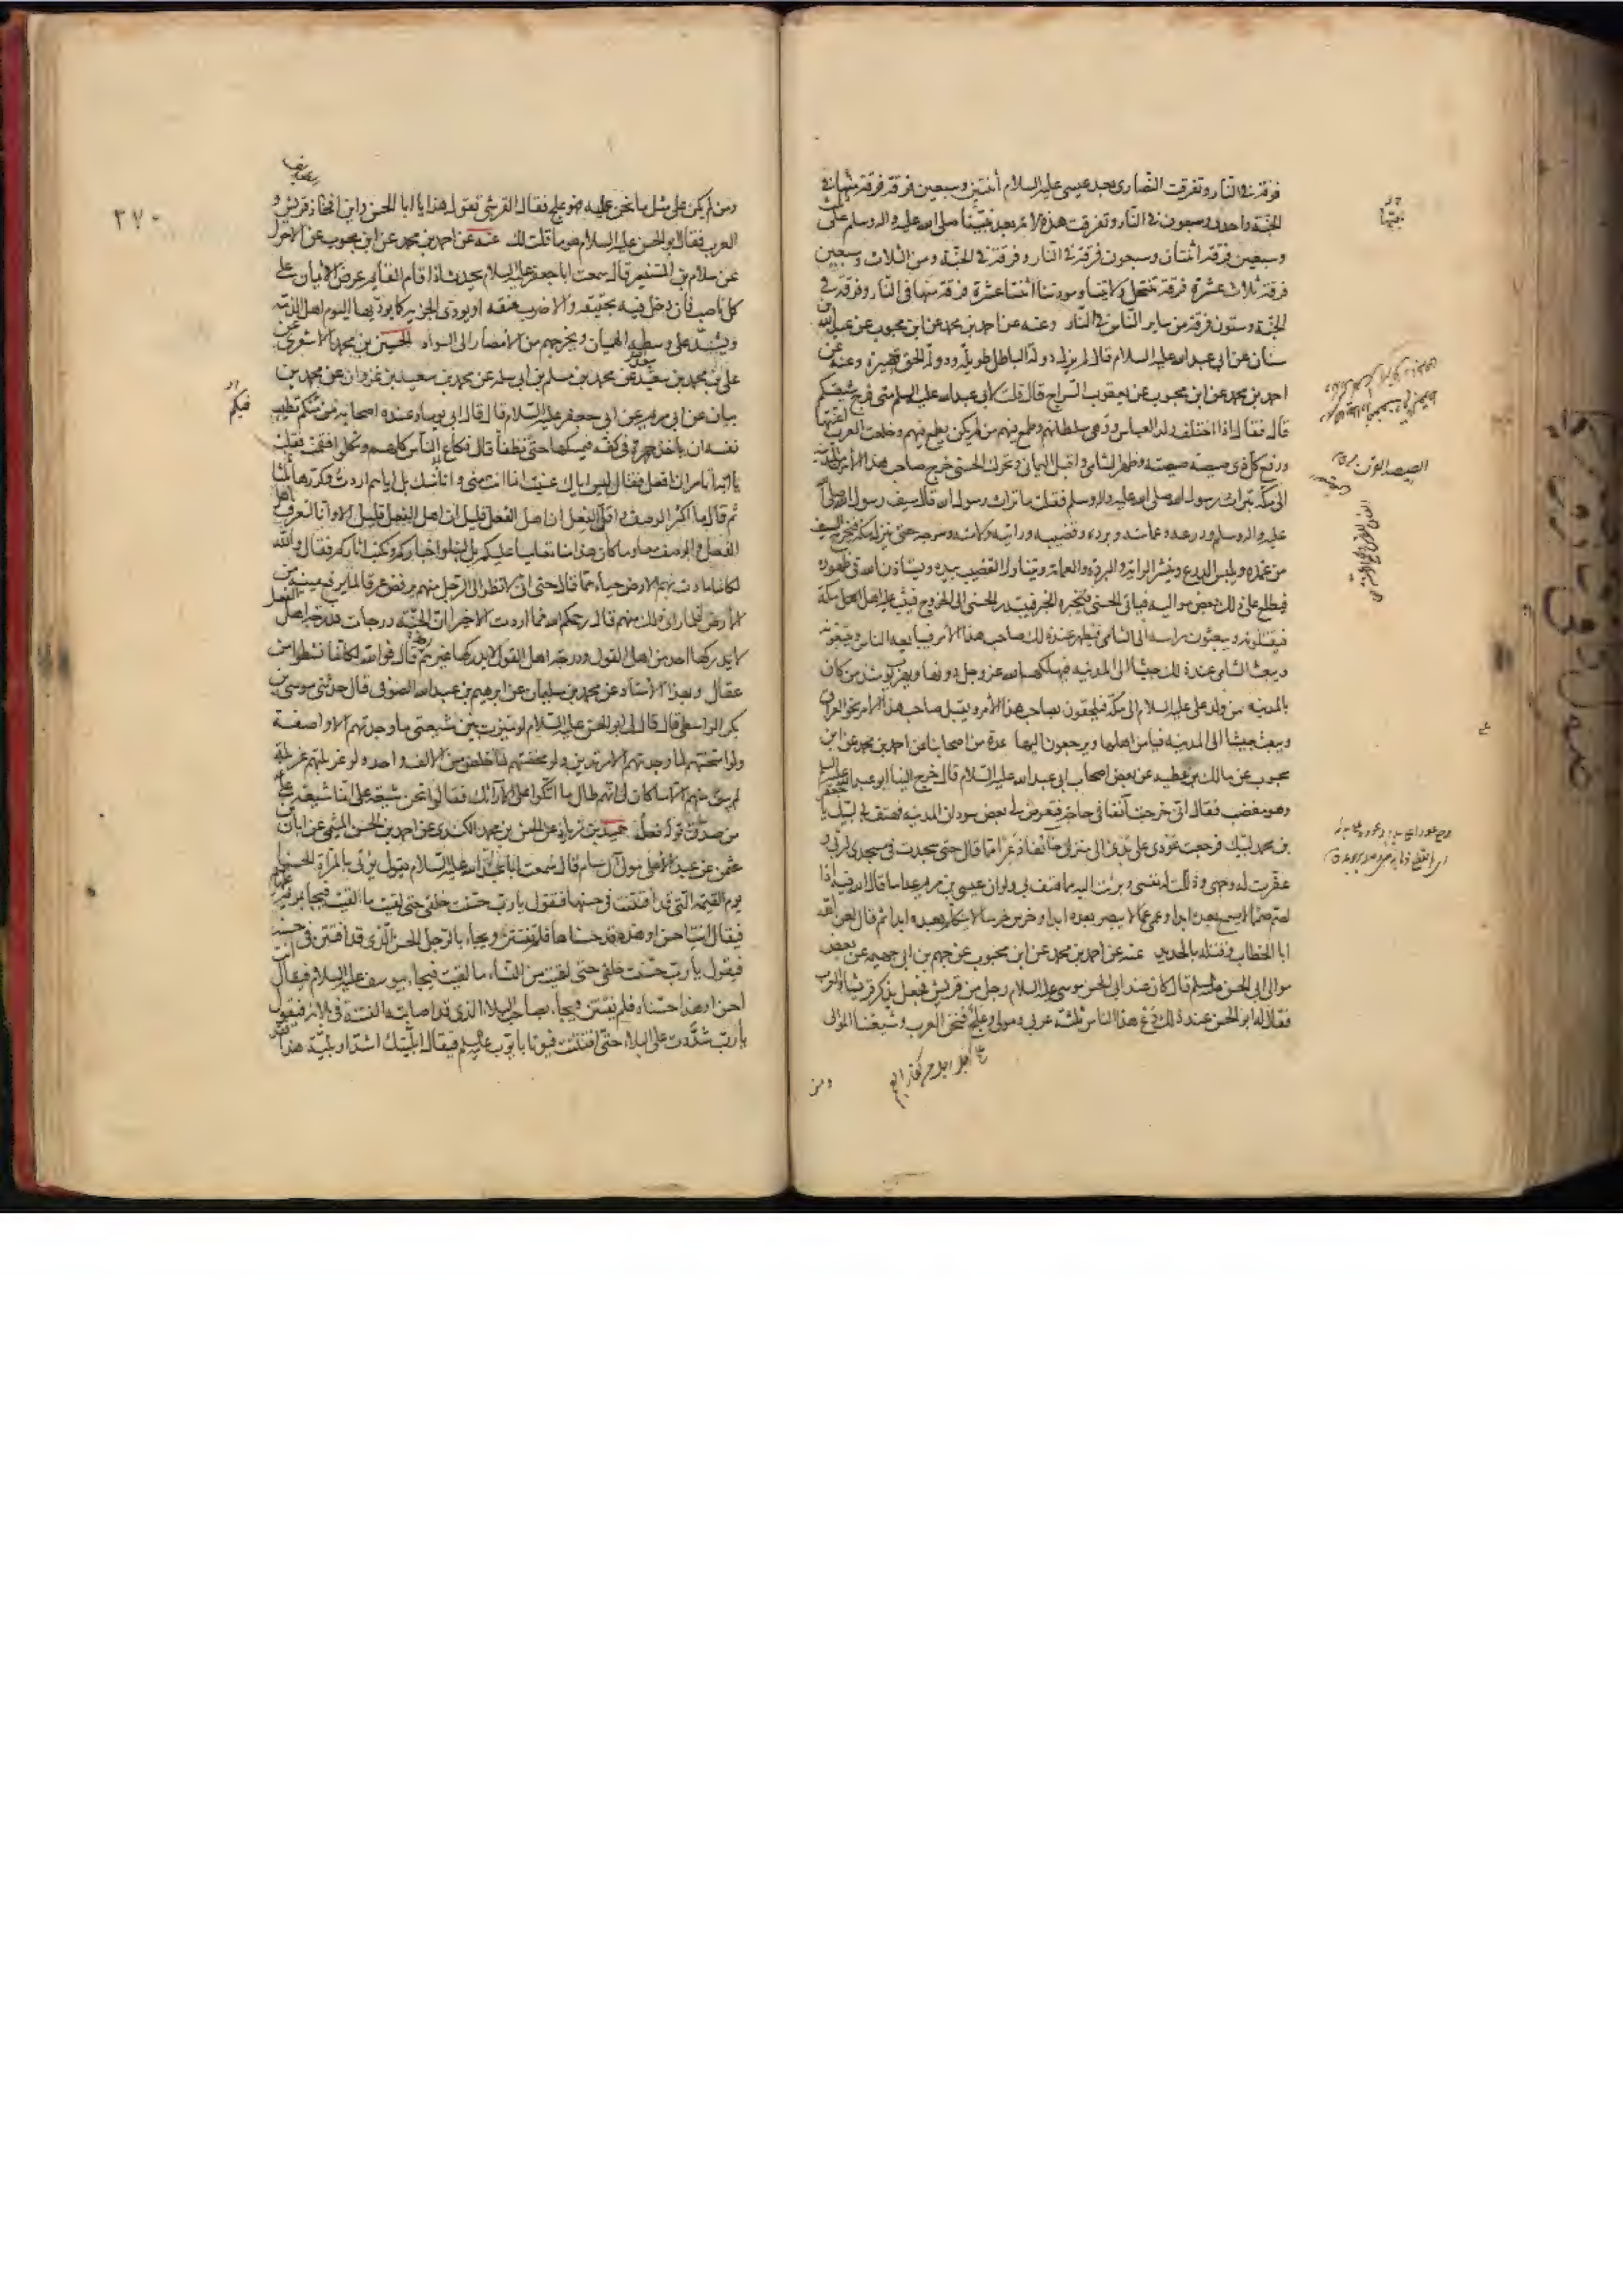 فرقة في النار وتفرقت النصارى بعد عيسى عليه السلام اثنتين وسبعين فرقة فرقة منها في
الجنة واحدى وسبعون في النار وتفرقت هذه الامة بعد نبينا صلى الله عليه واله وسلم على ثلث
وسبعين فرقة اثنتان وسبعون فرقة في النار وفرقة في الجنة ومن الثلاث وسبعين
فرقة ثلاث عشرة فرقة تنتحل ولايتنا ومودتنا اثنتا عشرة فرقة منها في النار وفرقة في
الجنة وستون فرقة من ساير الناس في النار وعنه عن احمد بن محمد عن ابن محبوب عن عبد الله بن
سنان عن ابي عبد الله عليه السلام قال لم يزل دولة الباطل طويلة ودولة الحق قصيرة وعنه عن
احمد بن محمد عن ابن محبوب عن يعقوب السراج قال قلت لابي عبد الله عليه السلم متى فرج شيعتكم
قال فقال اذا اختلف ولد العباس ووهى سلطانهم وطمع فيهم من لم يكن يطمع فيهم وخلعت العرب اعنتها
ورفع كل ذي صيصة صيصته وظهر الشامي واقبل اليماني وتحرك الحسني خرج صاحب هذا الامر من المدينة
الى مكة بتراث رسول الله صلى الله عليه واله وسلم فقلت ما تراث رسول الله قال سيف رسول الله صلى الله
عليه واله وسلم ودرعه وعمامته وبرده وقضيبه ورايته ولامته وسرجه حتى ينزل مكة فيخرج السيف
من غمده ويلبس الدرع وينشر الراية والبردة والعمامة ويتناول القضيب بيده ويستاذن الله في ظهوره
فيطلع على ذلك بعض مواليه فياتي الحسني فيخبره الخبر فيبتدر الحسني الى الخروج فيثب عليه اهل مكة
فيقتلونه ويبعثون براسه الى الشامي فيظهر عند ذلك صاحب هذا الامر فيبايعه الناس ويتبعونه
ويبعث الشامي عند ذلك جيشا الى المدينة فيهلكهم الله عز وجل دونها ويهرب يومئذ من كان
بالمدينة من ولد علي عليه السلام الى مكة فيلحقون بصاحب هذا الامر ويقبل صاحب هذا الامر نحو العراق
ويبعث جيشا الى المدينة فيامن اهلها ويرجعون اليها عدة من اصحابنا عن احمد بن محمد عن ابن
محبوب عن مالك بن عطية عن بعض اصحاب ابي عبد الله عليه السلام قال خرج الينا ابو عبد الله عليه السلم
وهو مغضب فقال اني خرجت آنفا في حاجة فتعرض لي بعض سودان المدينة فهتف بي لبيك يا جعفر
بن محمد لبيك فرجعت عودي على بدئي الى منزلي خائفا ذعرا مما قال حتى سجدت في مسجدي لربي و
عفرت له وجهي وذللت له نفسي وبرئت اليه مما هتف بي ولو ان عيسى بن مريم عدا ما قال الله فيه اذا
لصم صما لا يسمع بعده ابدا وعمي عما لا يبصر بعده ابدا وخرس خرسا لا يتكلم بعده ابدا ثم قال لعن الله
ابا الخطاب وقتله بالحديد عنه عن احمد بن محمد عن ابن محبوب عن جهم بن ابي جهيمة عن بعض
موالي ابي الحسن عليه السلم قال كان عند ابي الحسن موسى عليه السلام رجل من قريش فجعل يذكر قريشا والعرب
فقال له ابو الحسن عند ذلك دع هذا الناس ثلثة عربي ومولى وعلج فنحن العرب وشيعتنا الموالي
ومن
٣٧٠
ومن لم يكن على مثل ما نحن عليه فهو علج فقال القرشي تقول هذا يا ابا الحسن فاين افخاذ قريش و
العرب فقال ابو الحسن عليه السلام هو ما قلت لك عنه عن احمد بن محمد عن ابن محبوب عن الاحول
عن سلام بن المستنير قال سمعت ابا جعفر عليه السلام يحدث اذا قام القائم عرض الايمان على
كل ناصب فان دخل فيه بحقيقة والا ضرب عنقه او يودي الجزية كما يوديها اليوم اهل الذمة
ويشد على وسطه الهميان ويخرجهم من الامصار الى السواد الحسين بن محمد الاشعري عن
علي بن محمد بن سعيد عن محمد بن مسلم بن ابي سلمة عن محمد بن سعيد بن غزوان عن محمد بن
بيان عن ابي مريم عن ابي جعفر عليه السلام قال قال ابي يوما وعنده اصحابه من منكم تطيب
نفسه ان ياخذ جمرة في كفه فيمسكها حتى تطفأ قال فكاع الناس كلهم ونكلوا فقمت فقلت
يا ابة اتامر ان افعل فقال ليس اياك عنيت انما انت مني وانا منك بل اياهم اردت وكررها ثلثا
ثم قال ما اكثر الوصف واقل الفعل ان اهل الفعل قليل ان اهل الفعل قليل الا وانا لنعرف اهل
الفعل والوصف معا وما كان هذا منا تعاميا عليكم بل لنبلو اخباركم ونكتب اثاركم فقال والله
لكانما مادت بهم الارض حياء مما قال حتى اني لانظر الى الرجل منهم يرفض عرقا ما يرفع عينيه من
الارض فلما راى ذلك منهم قال رحمكم الله فما اردت الا خيرا ان الجنة درجات فدرجة اهل الفعل
لا يدركها احد من اهل القول ودرجة اهل القول لا يدركها غيرهم قال فوالله لكانما نشطوا من
عقال وبهذا الاسناد عن محمد بن سليمان عن ابراهيم بن عبد الله الصوفي قال حدثني موسى بن
بكر الواسطي قال قال لي ابو الحسن عليه السلام لو ميزت شيعتي ما وجدتهم الا واصفة
ولو امتحنتهم لما وجدتهم الا مرتدين ولو محصتهم لما خلص من الالف واحد ولو غربلتهم غربلة
لم يبق منهم الا ما كان لي انهم طال ما اتكوا على الارائك فقالوا نحن شيعة علي انما شيعة علي
من صدق قوله فعله حميد بن زياد عن الحسن بن محمد الكندي عن احمد بن الحسن الميثمي عن ابان بن
عثمن عن عبد الاعلى مولى آل سام قال سمعت ابا عبد الله عليه السلام يقول يؤتى بالمراة الحسناء
يوم القيمة التي قد افتتنت في حسنها فتقول يا رب حسنت خلقي حتى لقيت ما لقيت فيجاء بمريم عليها السلم
فيقال انت احسن او هذه قد حسناها فلم تفتتن ويجاء بالرجل الحسن الذي قد افتتن في حسنه
فيقول يا رب حسنت خلقي حتى لقيت من النساء ما لقيت فيجاء بيوسف عليه السلام فيقال انت
احسن او هذا حسناه فلم يفتتن ويجاء بصاحب البلاء الذي قد اصابته الفتنة في بلائه فيقول
يا رب شددت علي البلاء حتى افتتنت فيوتى بايوب عليه السلم فيقال ابليتك اشد او بلية هذا فقد
فيكم